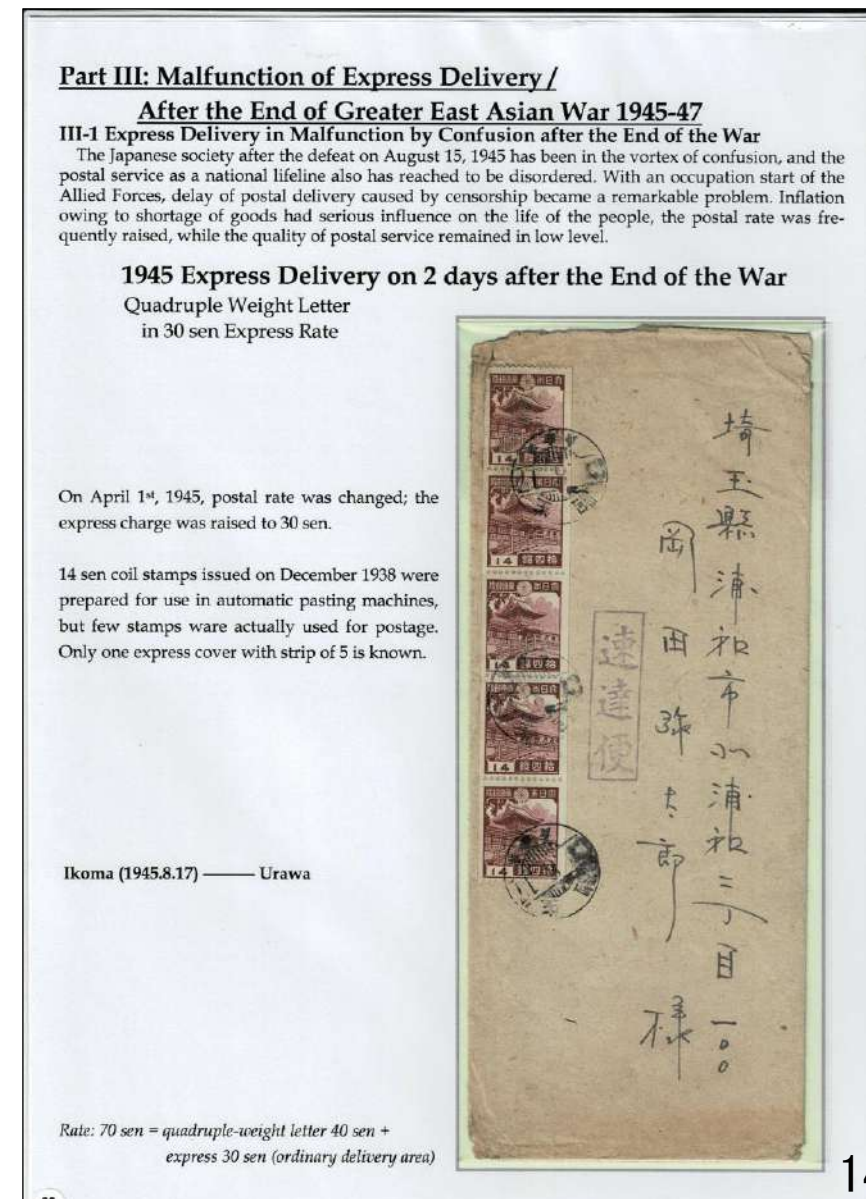 Part III: Malfunction of Express Delivery /
After the End of Greater East Asian War 1945-47
III-1 Express Delivery in Malfunction by Confusion after the End of the War
The Japanese society after the defeat on August 15, 1945 has been in the vortex of confusion, and the
postal service as a national lifeline also has reached to be disordered. With an occupation start of the
Allied Forces, delay of postal delivery caused by censorship became a remarkable problem. Inflation
owing to shortage of goods had serious influence on the life of the people, the postal rate was fre-
quently raised, while the quality of postal service remained in low level.
1945 Express Delivery on 2 days after the End of the War
Quadruple Weight Letter
in 30 sen Express Rate
On April 1st, 1945, postal rate was changed; the
express charge was raised to 30 sen.
14 sen coil stamps issued on December 1938 were
prepared for use in automatic pasting machines,
but few stamps ware actually used for postage.
Only one express cover with strip of 5 is known.
Ikoma (1945.8.17) ——— Urawa
Rate: 70 sen = quadruple-weight letter 40 sen +
express 30 sen (ordinary delivery area)
埼玉縣浦和市北浦和三丁目一〇〇
岡田弥太郎様
速達便
14 錢四拾
14 錢四拾
14 錢四拾
14 錢四拾
14